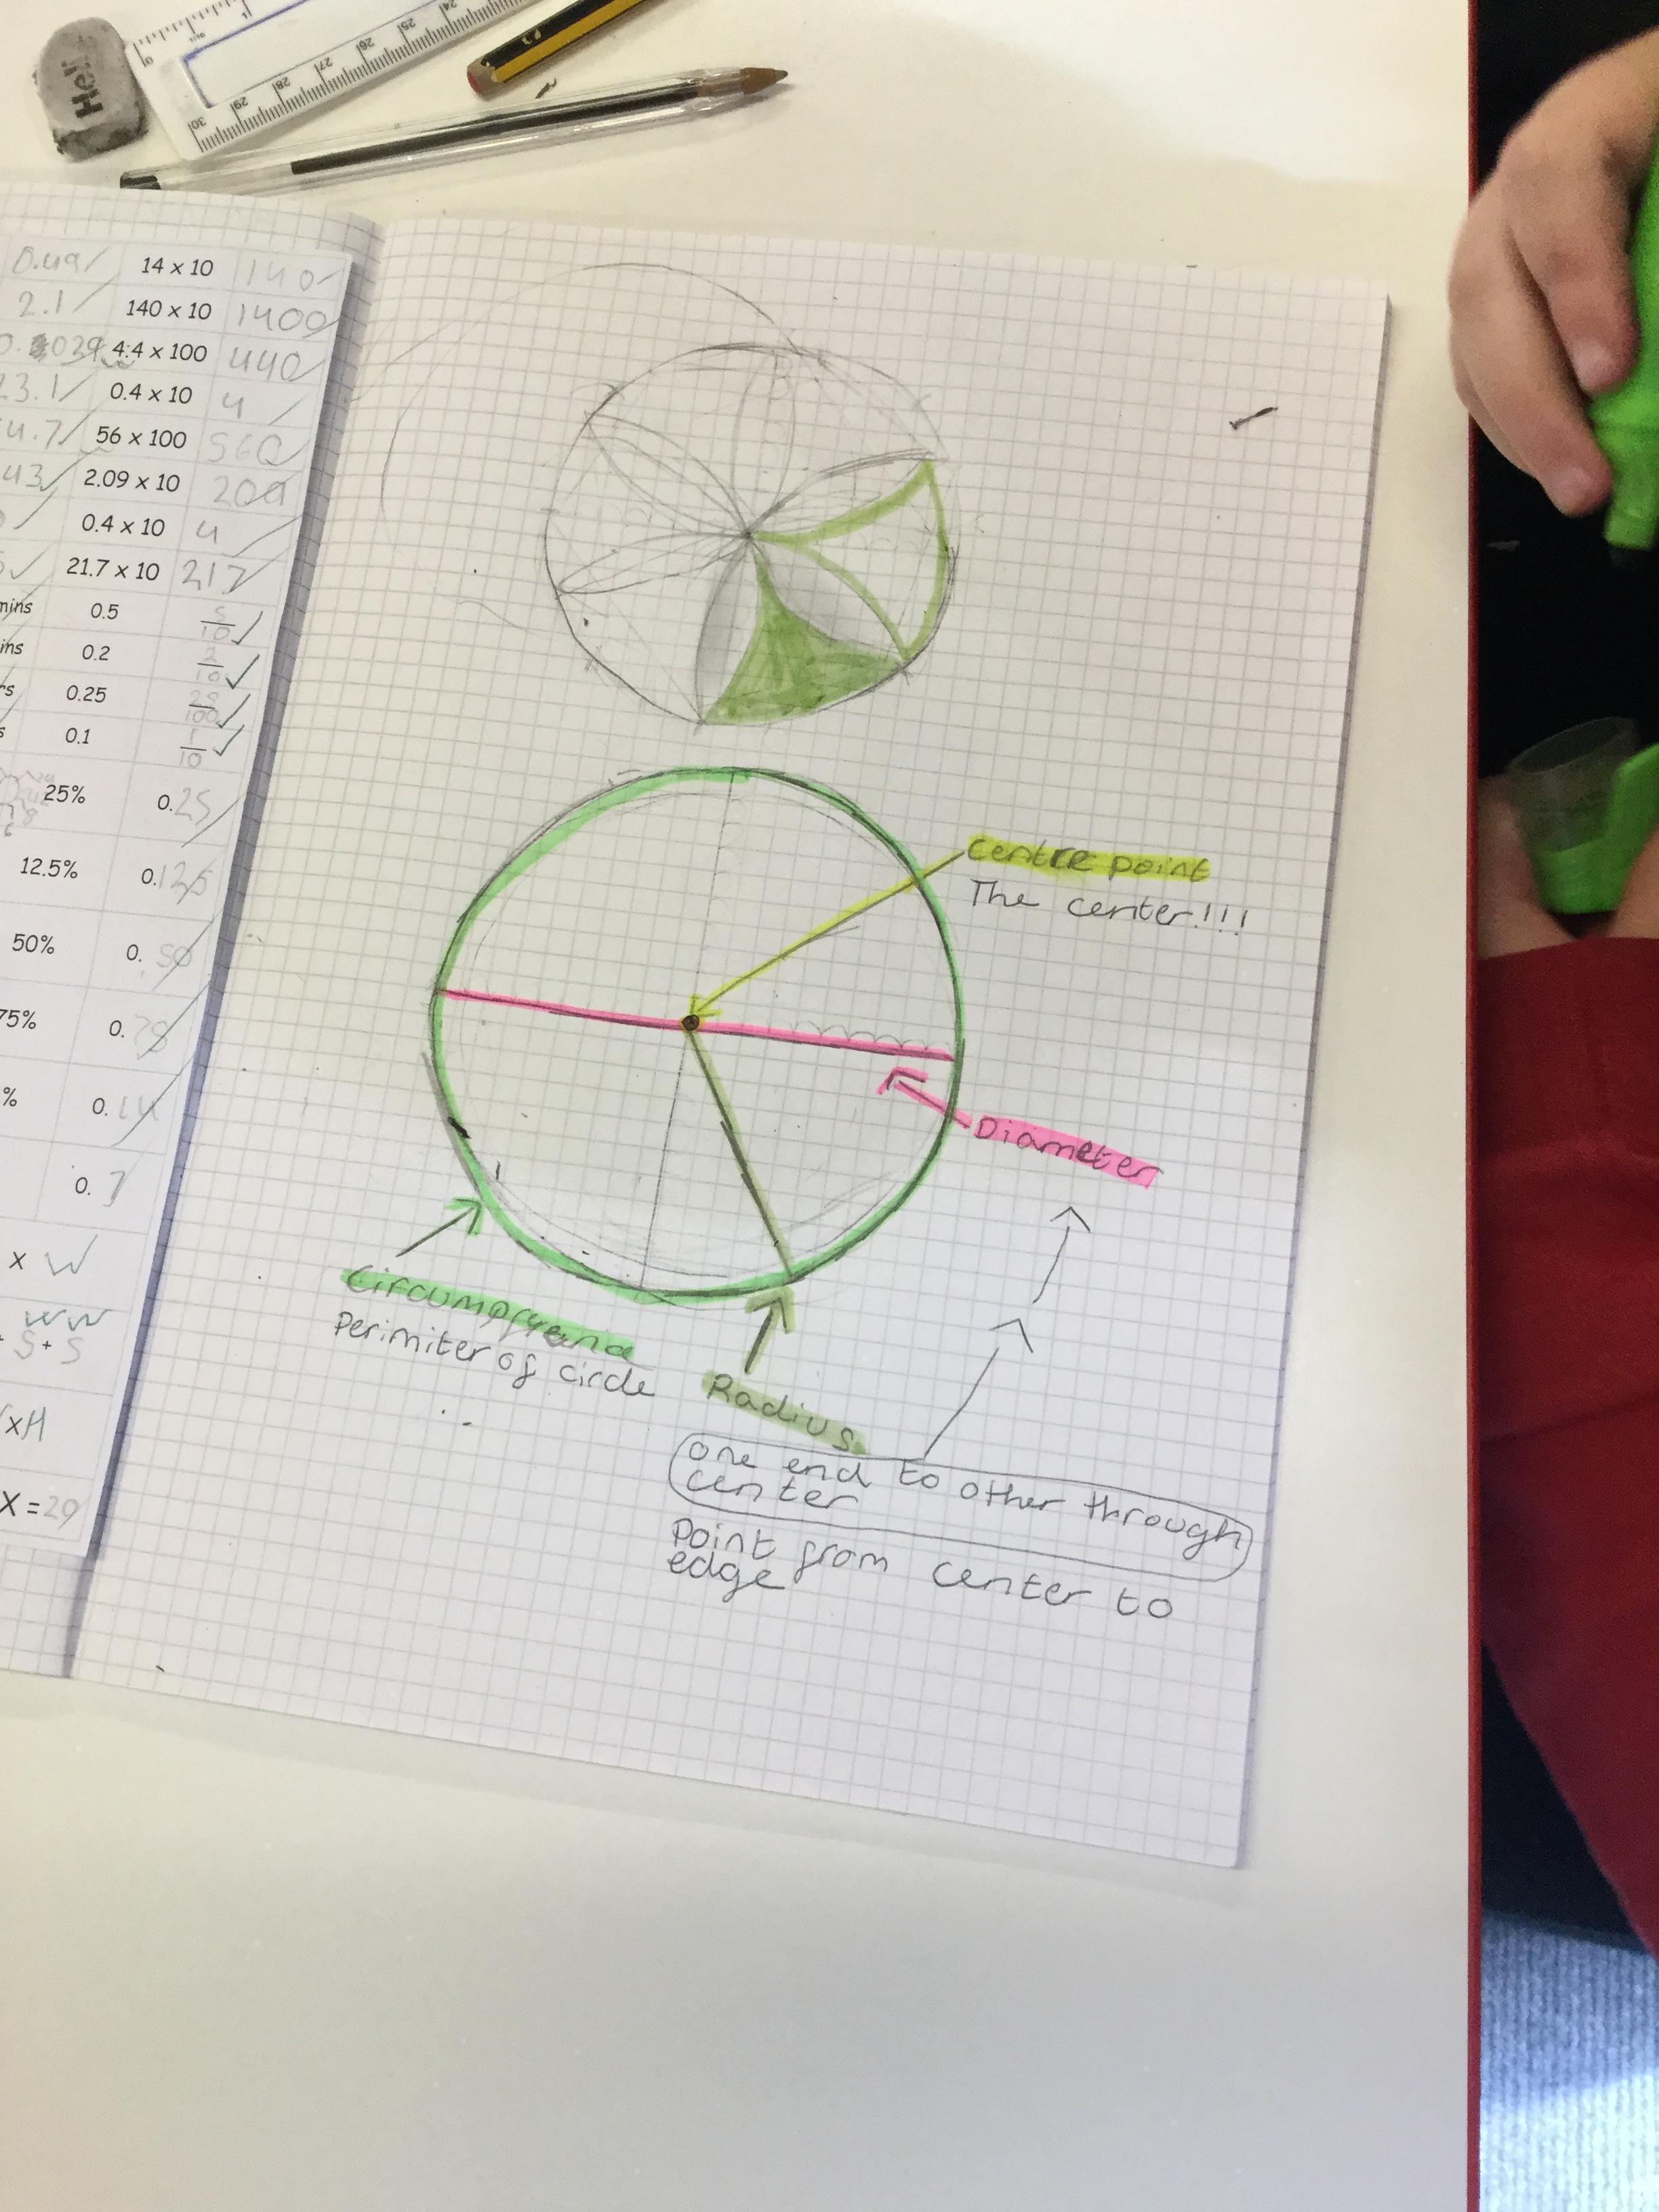 Hel
30 29 28 27 26 25 24
0.49 14 x 10 140
2.1 140 x 10 1400
4.4 x 100 440
23.1 0.4 x 10 4
4.7 56 x 100 560
43 2.09 x 10 209
0.4 x 10 4
21.7 x 10 217
mins 0.5 5/10
ins 0.2 2/10
rs 0.25 25/100
s 0.1 1/10
25% 0.25
12.5% 0.125
50% 0.50
75% 0.75
% 0.14
0.7
x W
W W
+ S + S
x H
X = 29
centre point
The center!!!
Diameter
Perimiter of circle
Radius
one end to other through
center
Point from center to
edge